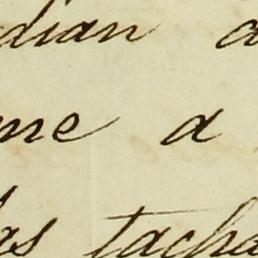 dian a
me a
las tacha